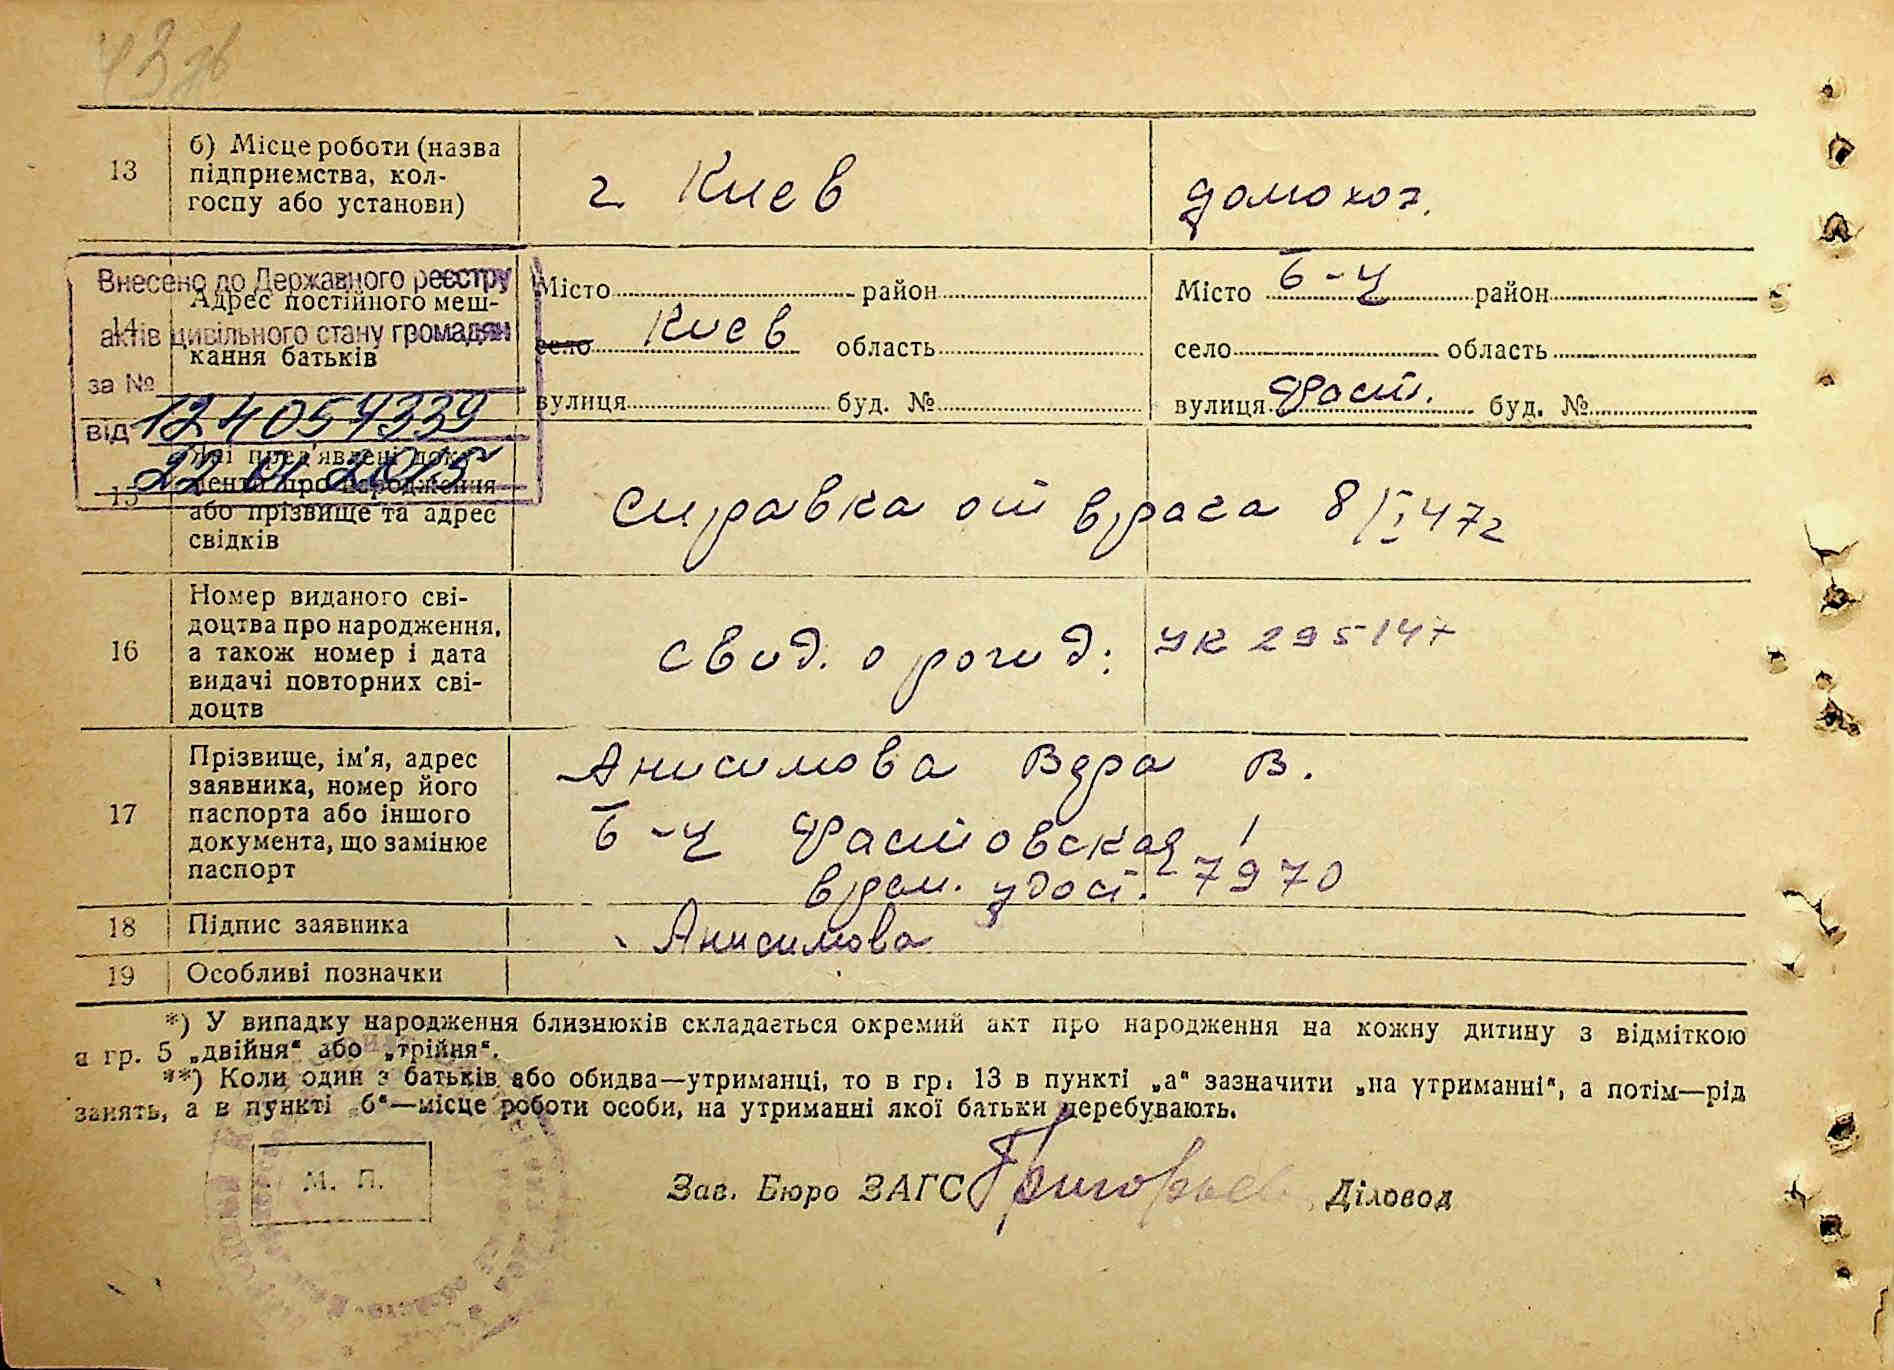 13
б) Місце роботи (назва
підприємства, кол-
госпу або установи)
г Киев
домохоз.
Внесено до Державного реєстру
актів цивільного стану громадян
за №
124054339
від
22 01 2015
14
Адрес постійного меш-
кання батьків
Місто район
село Киев область
вулиця буд. №
Місто Б-Ц район
село область
вулиця Фаст. буд. №
15
Які пред'явлені доку-
менти про народження
або прізвище та адрес
свідків
справка от врача 8/I 47г
16
Номер виданого сві-
доцтва про народження,
а також номер і дата
видачі повторних сві-
доцтв
Свид. о рожд: УК 295147
17
Прізвище, ім'я, адрес
заявника, номер його
паспорта або іншого
документа, що замінює
паспорт
Анисимова Вера В.
Б-Ц Фастовская 1
врем. удост. 7970
18
Підпис заявника
Анисимова
19
Особливі позначки
*) У випадку народження близнюків складається окремий акт про народження на кожну дитину з відміткою
в гр. 5 „двійня“ або „трійня“.
**) Коли один з батьків або обидва—утриманці, то в гр. 13 в пункті „а“ зазначити „на утриманні“, а потім—рід
занять, а в пункті „б“—місце роботи особи, на утриманні якої батьки перебувають.
М. П.
Зав. Бюро ЗАГС Григорьев Діловод